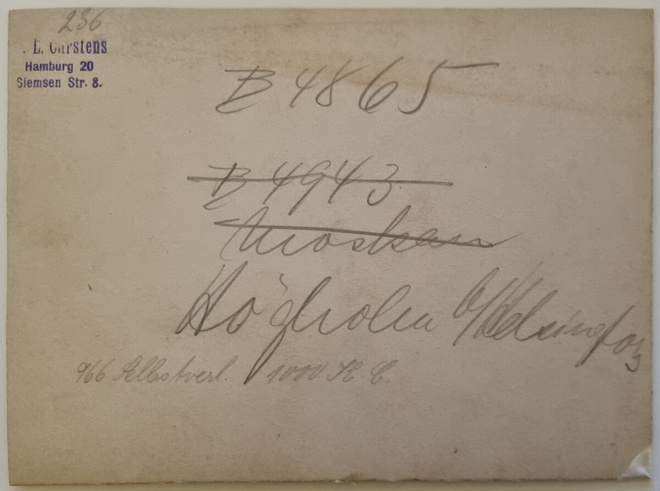 236
. L. Carstens
Hamburg 20
Siemsen Str. 8.
B 4865
B 4943
Moskau
Högholm b/Helsingfors
966 Selbstverl. 1000 K. C.